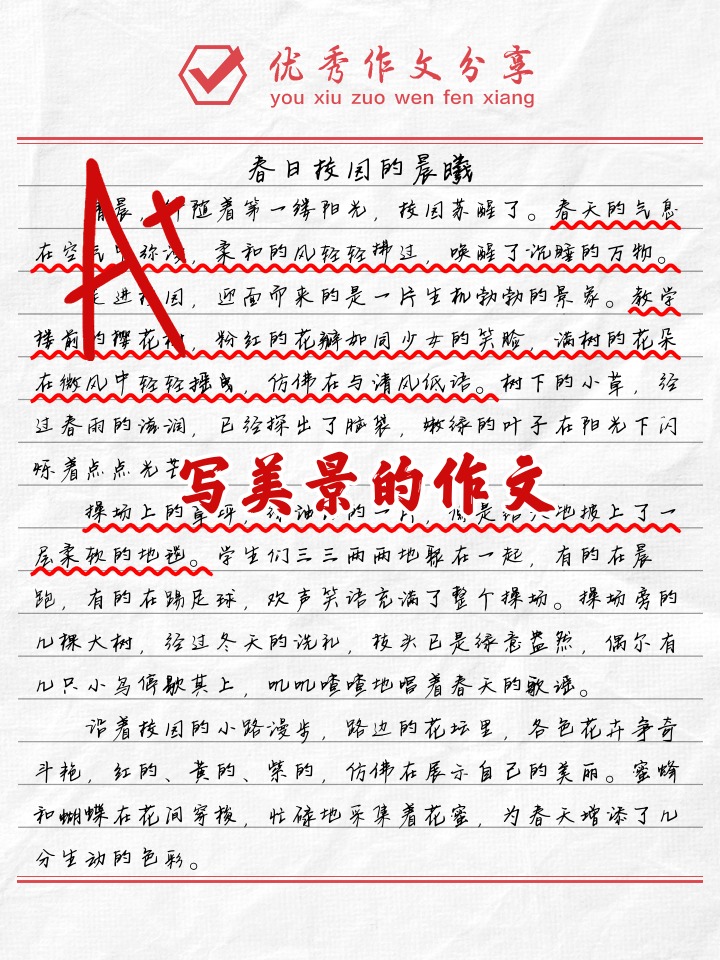 优秀作文分享
you xiu zuo wen fen xiang
春日校园的晨曦
清晨，伴随着第一缕阳光，校园苏醒了。春天的气息
在空气中弥漫，柔和的风轻轻拂过，唤醒了沉睡的万物。
走进校园，迎面而来的是一片生机勃勃的景象。教学
楼前的樱花树，粉红的花瓣如同少女的笑脸，满树的花朵
在微风中轻轻摇曳，仿佛在与清风低语。树下的小草，经
过春雨的滋润，已经探出了脑袋，嫩绿的叶子在阳光下闪
烁着点点光芒
写美景的作文
操场上的草坪，绿油的一片，像是给大地披上了一
层柔软的地毯。学生们三三两两地聚在一起，有的在晨
跑，有的在踢足球，欢声笑语充满了整个操场。操场旁的
几棵大树，经过冬天的洗礼，枝头已是绿意盎然，偶尔有
几只小鸟停歇其上，叽叽喳喳地唱着春天的歌谣。
沿着校园的小路漫步，路边的花坛里，各色花卉争奇
斗艳，红的、黄的、紫的，仿佛在展示自己的美丽。蜜蜂
和蝴蝶在花间穿梭，忙碌地采集着花蜜，为春天增添了几
分生动的色彩。
A+